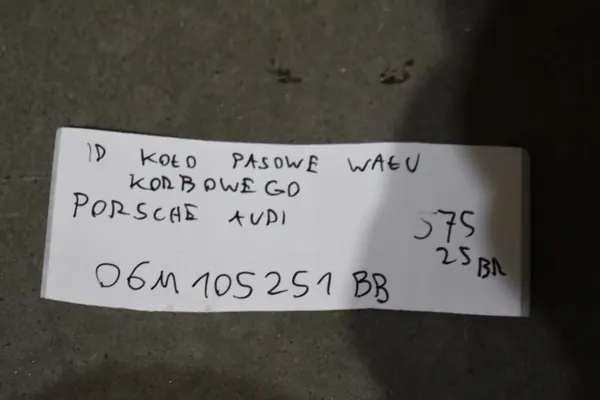 ID KOŁO PASOWE WAŁU
KORBOWEGO
PORSCHE AUDI
575
25 BR
06M 105251 BB